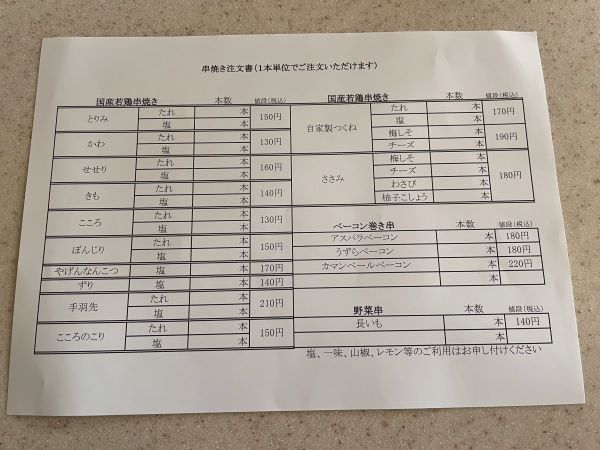 串焼き注文書(1本単位でご注文いただけます)
国産若鶏串焼き 本数 値段(税込)
とりみ たれ 本 150円
塩 本
かわ たれ 本 130円
塩 本
せせり たれ 本 160円
塩 本
きも たれ 本 140円
塩 本
こころ たれ 本 130円
塩 本
ぼんじり たれ 本 150円
塩 本
やげんなんこつ 塩 本 170円
ずり 塩 本 140円
手羽先 たれ 本 210円
塩 本
こころのこり たれ 本 150円
塩 本
国産若鶏串焼き 本数 値段(税込)
自家製つくね たれ 本 170円
塩 本
梅しそ 本 190円
チーズ 本
ささみ 梅しそ 本 180円
チーズ 本
わさび 本
柚子こしょう 本
ベーコン巻き串 本数 値段(税込)
アスパラベーコン 本 180円
うずらベーコン 本 180円
カマンベールベーコン 本 220円
本
野菜串 本数 値段(税込)
長いも 本 140円
本
塩、一味、山椒、レモン等のご利用はお申し付けください